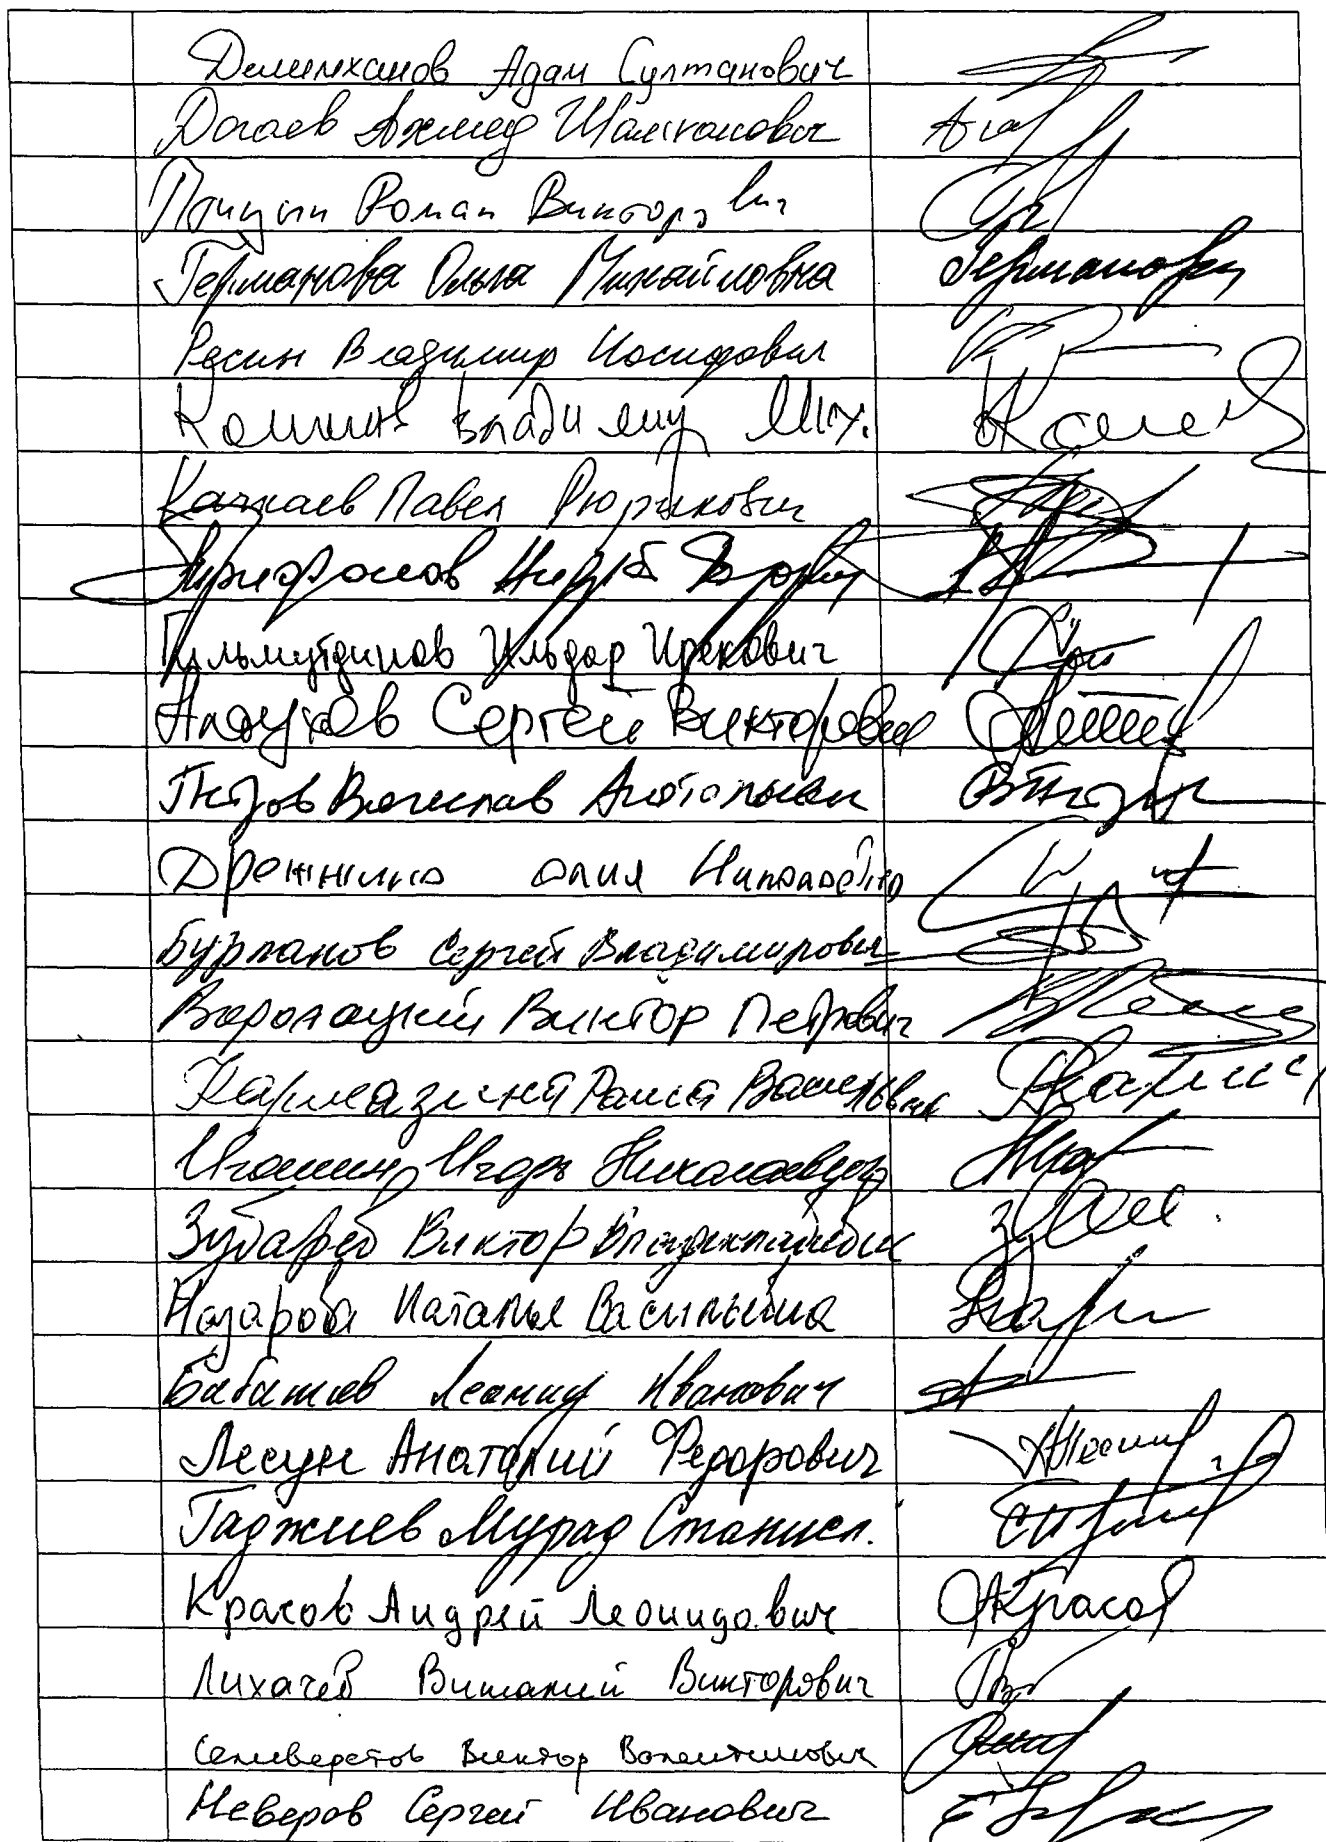 Делимханов Адам Султанович
Догаев Ахмед Шамханович
Птицын Роман Викторович
Германова Ольга Михайловна Германова
Ресин Владимир Иосифович
Кошин Владимир Мих.
Качкаев Павел Рюрикович
Трифонов Андрей
Гильмутдинов Ильдар Ирекович
Алтухов Сергей Викторович
Петров Вячеслав Анатольевич
Дрожжина Юлия Николаевна
Бурлаков Сергей Владимирович
Водолацкий Виктор Петрович
Кармазина Раиса Васильевна
Игошин Игорь Николаевич
Зубарев Виктор Владиславович
Назарова Наталья Васильевна
Бабашов Леонид Иванович
Лесун Анатолий Федорович
Гаджиев Мурад Станисл.
Красов Андрей Леонидович Красов
Лихачев Виталий Викторович
Селиверстов Виктор Валентинович
Неверов Сергей Иванович